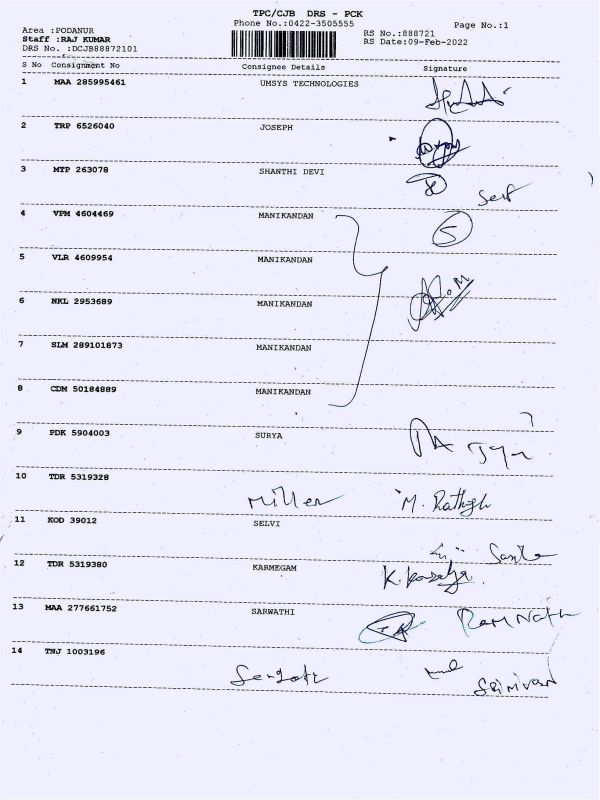 TPC/CJB DRS - PCK
Area :PODANUR Phone No.:0422-3505555 Page No.:1
Staff :RAJ KUMAR RS No.:888721
DRS No. :DCJB88872101 RS Date:09-Feb-2022
S No Consignment No Consignee Details Signature
1 MAA 285995461 UMSYS TECHNOLOGIES
2 TRP 6526040 JOSEPH
3 MTP 263078 SHANTHI DEVI
Self
4 VPM 4604469 MANIKANDAN 5
5 VLR 4609954 MANIKANDAN
6 NKL 2953689 MANIKANDAN
7 SLM 289101873 MANIKANDAN
8 CDM 50184889 MANIKANDAN
9 PDK 5904003 SURYA
10 TDR 5319328
Miller M. Rathish
11 KOD 39012 SELVI
12 TDR 5319380 KARMEGAM
13 MAA 277661752 SARWATHI RamNath
14 TNJ 1003196